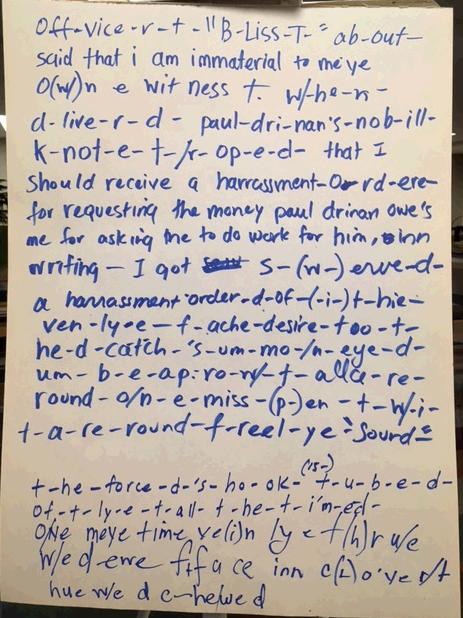 Off-vice-r-t-"B-Liss-T-" ab-out-
said that i am immaterial to meye
O(w)n e wit ness t. w/-he-n-
d-live-r-d- paul-dri-nan's-nob-ill-
k-not-e-t-/r-op-e-d- that I
Should receive a harrassment-Or rd-ere-
for requesting the money paul drinan owe's
me for asking me to do work for him, inn
writing - I got S-(w-)erve-d-
a harrassment order-d-of-(-i-)t-hie-
ven-ly-e-f-ache-desire-too-t-
he-d-catch-'s-um-mo-/n-eye-d-
um-b-e-ap-ro-n/-t-alla-re-
round-o/n-e-miss-(p-)en-t-w/-i-
t-a-re-round-f-reel-ye-"Sound"
t-he-force-d-'s-ho-ok-('s-)t-u-b-e-d-
of-t-ly-e-t-all-t-he-t-i'm-ed-
One meye time ve(i)n ly e f(h)r u/e
w/e d ewe f+face inn c(l)o've r/t
hue w/e d c-hewe d